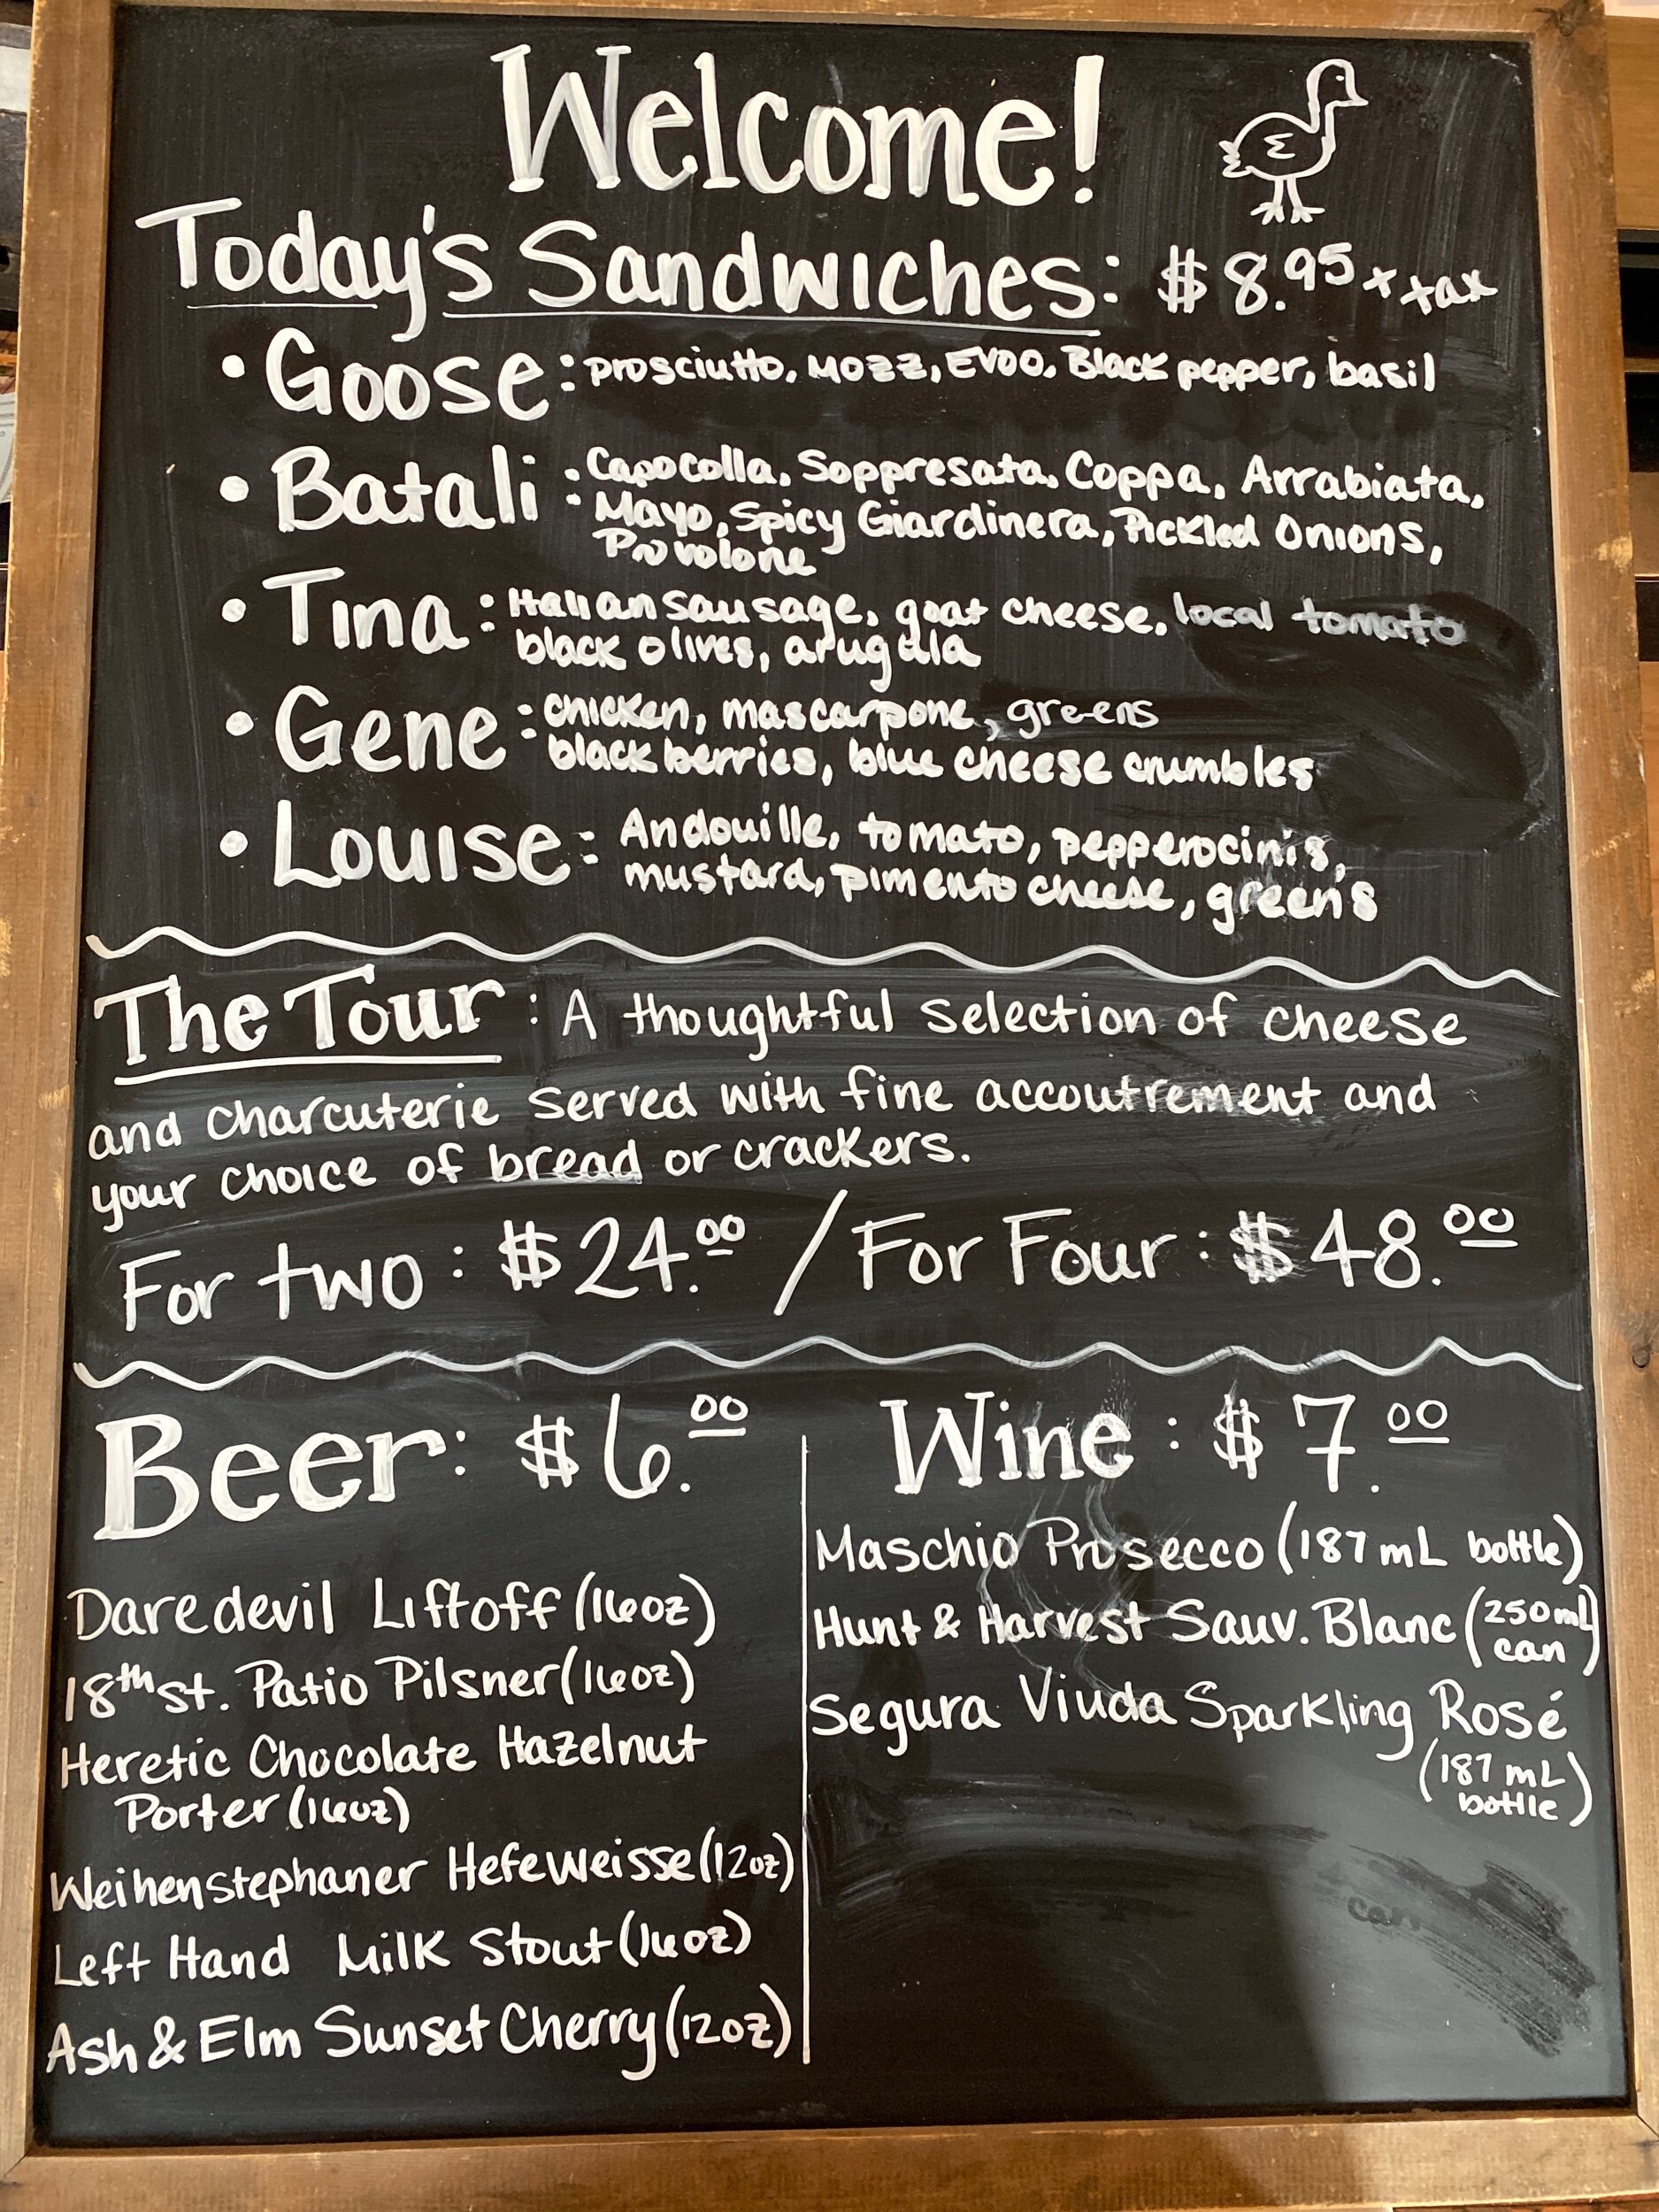 Welcome!
Today's Sandwiches: $8.95 + tax
• Goose: prosciutto, mozz, EVOO, Black pepper, basil
• Batali: Capocolla, Soppresata, Coppa, Arrabiata,
Mayo, Spicy Giardinera, Pickled Onions,
Provolone
• Tina: Italian sausage, goat cheese, local tomato
black olives, arugala
• Gene: chicken, mascarpone, greens
blackberries, blue cheese crumbles
• Louise: Andouille, tomato, pepperocinis,
mustard, pimento cheese, greens
The Tour: A thoughtful selection of cheese
and charcuterie served with fine accoutrement and
your choice of bread or crackers.
For two: $24.00 / For Four: $48.00
Beer: $6.00
Daredevil Liftoff (16oz)
18th st. Patio Pilsner (16oz)
Heretic Chocolate Hazelnut
Porter (16oz)
Weihenstephaner Hefeweisse (12oz)
Left Hand Milk Stout (16oz)
Ash & Elm Sunset Cherry (12oz)
Wine: $7.00
Maschio Prosecco (187mL bottle)
Hunt & Harvest Sauv. Blanc (250mL
can)
Segura Viuda Sparkling Rosé
(187 mL
bottle)
can